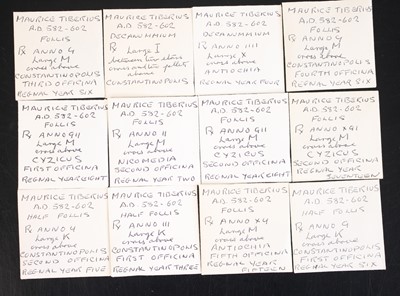 MAURICE TIBERIUS
A.D. 582-602
FOLLIS
℞ ANNO 9
Large M
cross above
CONSTANTINOPOLIS
THIRD OFFICINA
REGNAL YEAR SIX
MAURICE TIBERIUS
A.D. 582-602
DECANUMMIUM
℞ Large I
between two stars
cross above
CONSTANTINOPOLIS
MAURICE TIBERIUS
A.D. 582-602
DECANUMMIUM
℞ ANNO IIII
Large X
cross above
ANTIOCHIA
REGNAL YEAR FOUR
MAURICE TIBERIUS
A.D. 582-602
FOLLIS
℞ ANNO 9
Large M
cross above
CONSTANTINOPOLIS
FOURTH OFFICINA
REGNAL YEAR SIX
MAURICE TIBERIUS
A.D. 582-602
FOLLIS
℞ ANNO 9II
Large M
cross above
CYZICUS
FIRST OFFICINA
REGNAL YEAR EIGHT
MAURICE TIBERIUS
A.D. 582-602
FOLLIS
℞ ANNO II
Large M
cross above
NICOMEDIA
SECOND OFFICINA
REGNAL YEAR TWO
MAURICE TIBERIUS
A.D. 582-602
FOLLIS
℞ ANNO 9II
Large M
cross above
CYZICUS
SECOND OFFICINA
REGNAL YEAR EIGHT
MAURICE TIBERIUS
A.D. 582-602
FOLLIS
℞ ANNO X9I
Large M
cross above
CYZICUS
SECOND OFFICINA
REGNAL YEAR
SEVENTEEN
MAURICE TIBERIUS
A.D. 582-602
HALF FOLLIS
℞ ANNO
Large K
cross above
CONSTANTINOPOLIS
SECOND OFFICINA
REGNAL YEAR FIVE
MAURICE TIBERIUS
A.D. 582-602
HALF FOLLIS
℞ ANNO III
Large K
cross above
CONSTANTINOPOLIS
FIRST OFFICINA
REGNAL YEAR THREE
MAURICE TIBERIUS
A.D. 582-602
FOLLIS
℞ ANNO
Large M
cross above
ANTIOCHIA
FIFTH OFFICINA
REGNAL YEAR
FIFTEEN
MAURICE TIBERIUS
A.D. 582-602
HALF FOLLIS
℞ ANNO 9
Large K
cross above
CONSTANTINOPOLIS
FIRST OFFICINA
REGNAL YEAR SIX